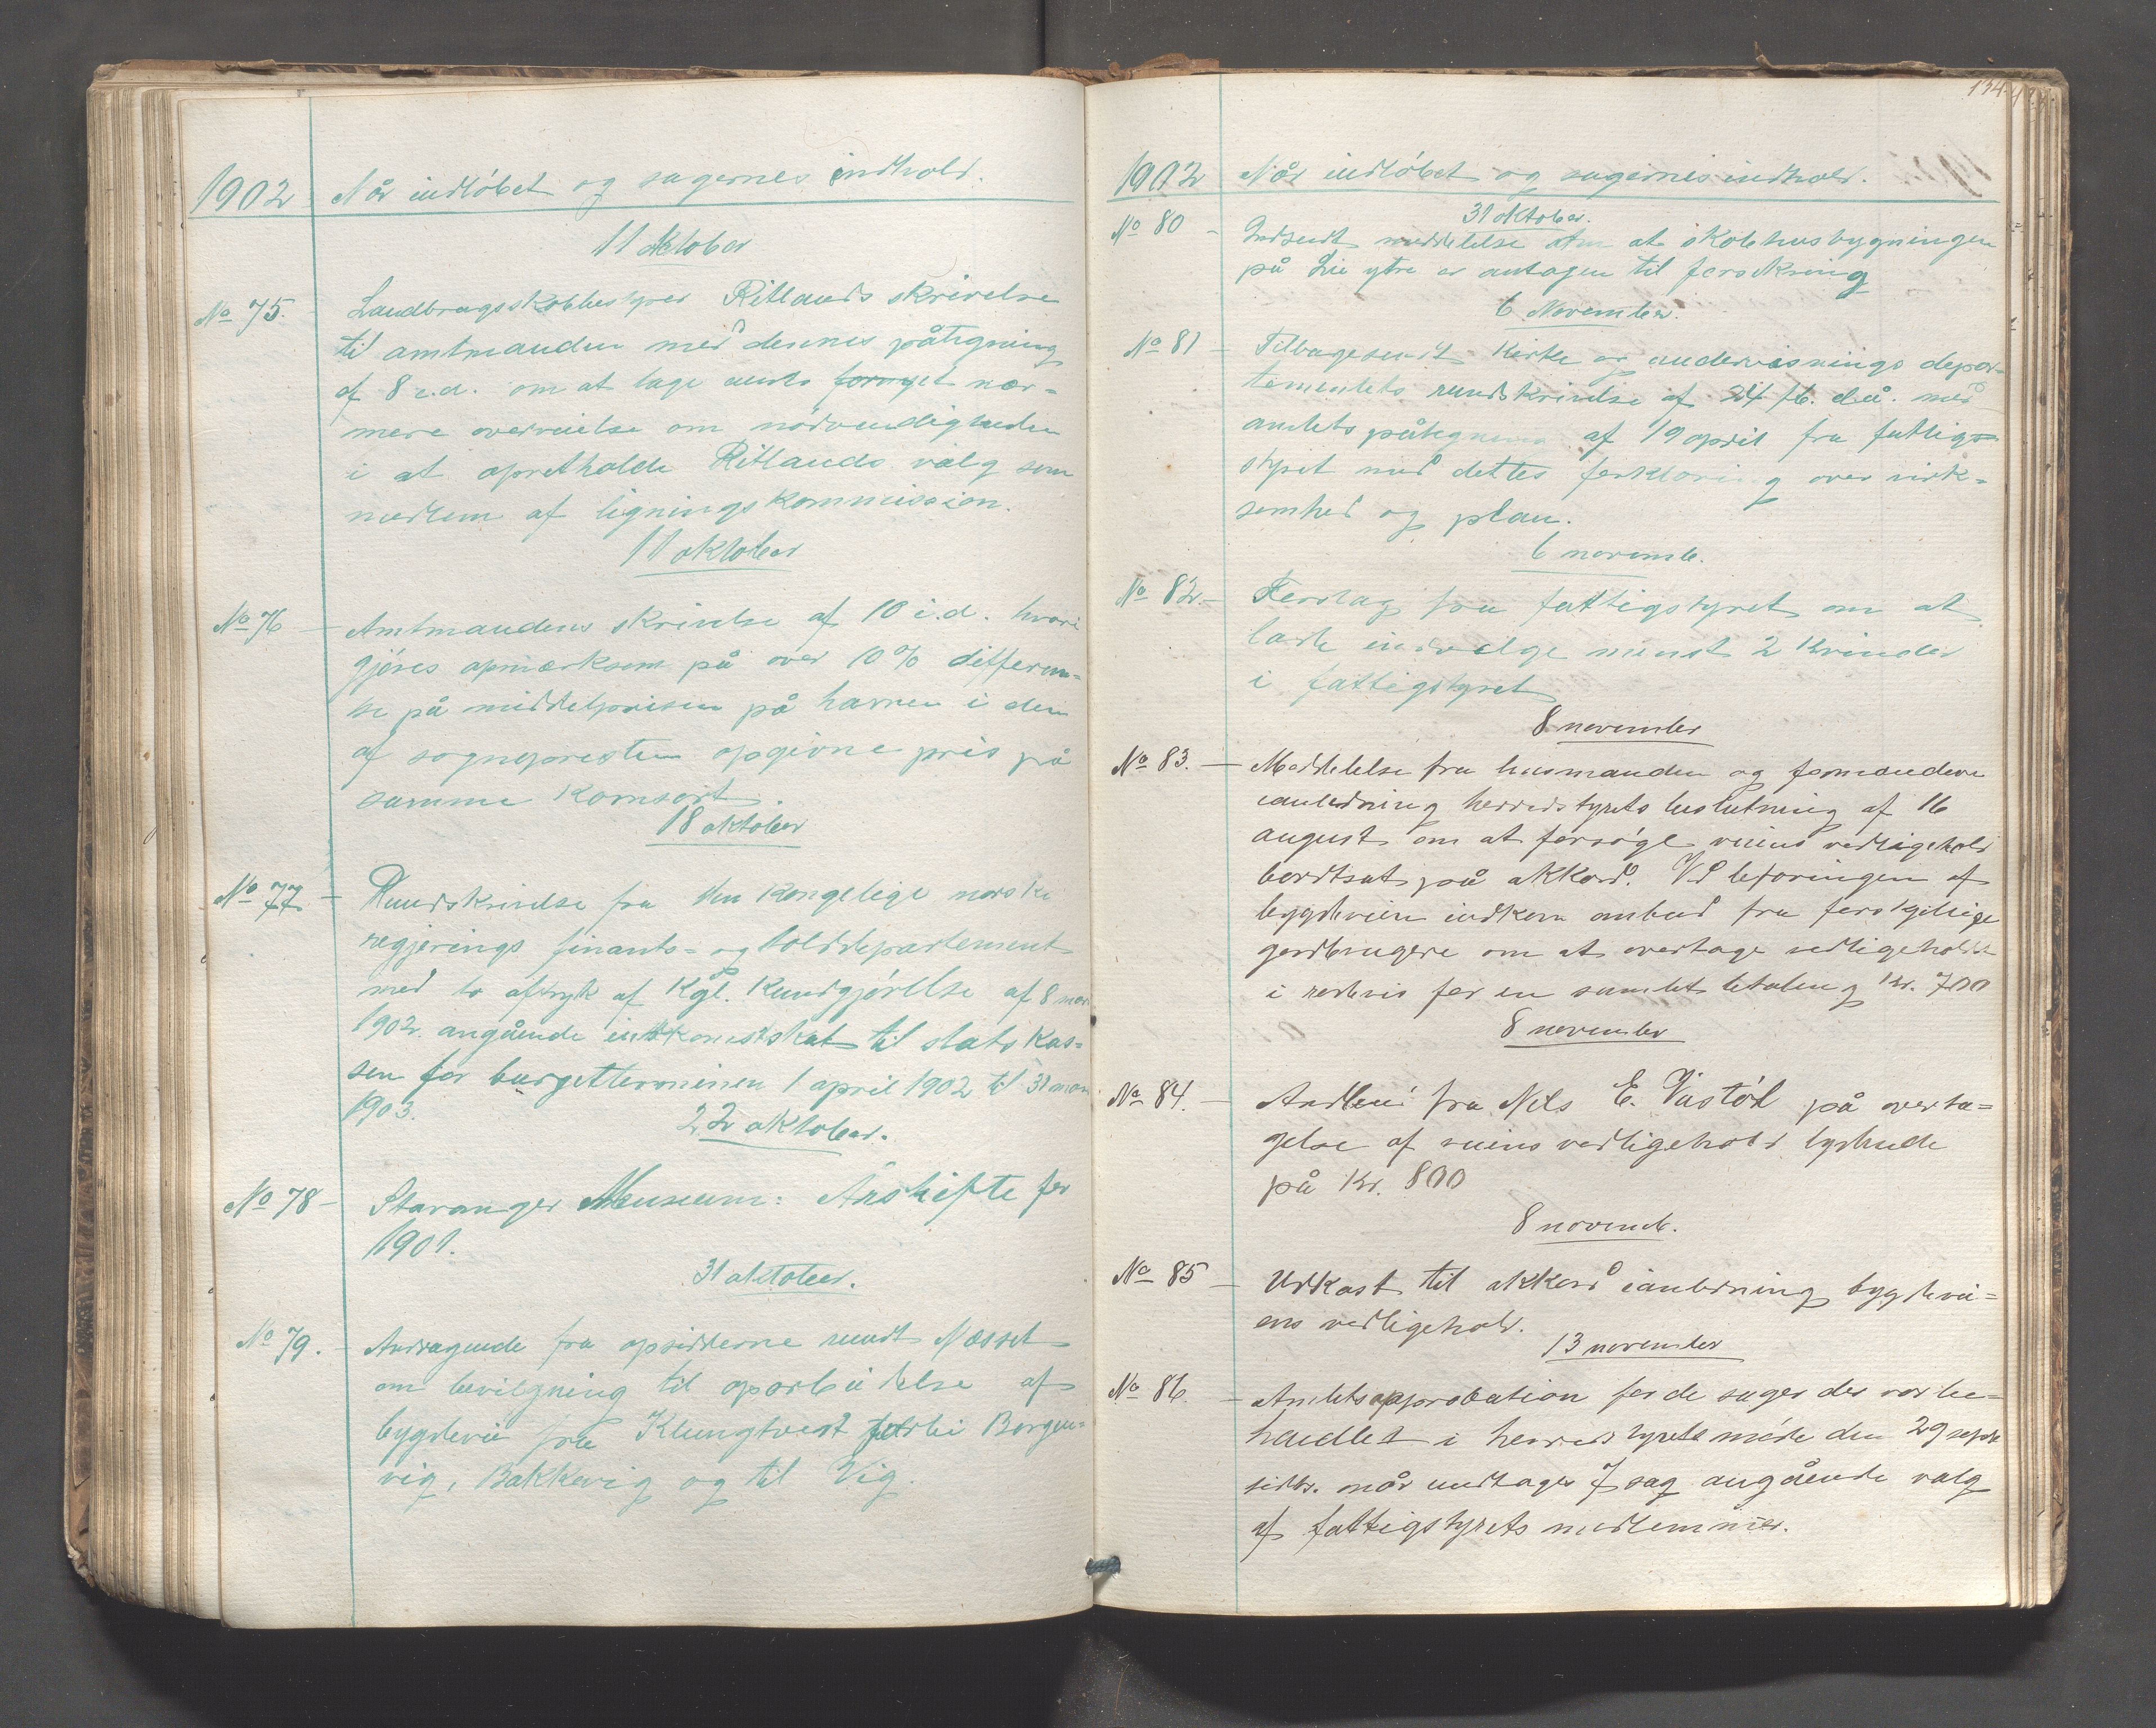 1902 Når indløbet og sagernes indhold.
11 oktober
No 75. Landbrugsskolbestyrer Ritlands skrivelse
til amtmanden med dennes påtegning
af 8 i.d. om at tage under fornyet nær=
mere overveielse om nødvendigheden
i at opretholde Ritlands valg som
medlem af ligningskommission.
11 oktober
No 76 Amtmandens skrivelse af 10 i.d. hvori
gjøres opmærksom på over 10% differen=
se på middelprisen på havren i den
af sognepresten opgivne pris på
samme kornsort.
18 oktober
No 77 – Rundskrivelse fra den kongelige norske
regjerings finants= og tolddepartement
med to aftryk af Kgl. Kundgjørelse af 8 mai
1902 angående indkomstskat til statskas=
sen for budgetterminen 1 april 1902 til 31 mars
1903.
22 oktober.
No 78 – Stavanger Museum: Årshefte for
1901.
31 oktober.
No 79. – Andragende fra opsidderne rundt Næsset
om bevilgning til oparbeidelse af
bygdevei fra Klungtveit forbi Borgen=
vig, Bakkevig og til Vig.
134
1902 Når indløbet og sagernes indhold.
31 oktober.
No 80 – Indsendt meddelelse om at skolehusbygningen
på Lie ytre er antagen til forsikring
6 November.
No 81 – Tilbagesendt Kirke og undervisnings depar=
tementets rundskrivelse af 24/6. d.å. med
amtets påtegning af 19 april fra fattig=
styret med dettes forklaring over virk=
somhed og plan.
6 novemb.
No 82. – Forslag fra fattigstyret om at
lade indvælge minst 2 kvinder
i fattigstyret
8 november
No 83. – Meddelelse fra lensmanden og formanden
ianledning herredstyrets beslutning af 16
august om at forsøge veiens vedligehold
bordtsat på akkord. Ved beforingen af
bygdeveien indkom anbud fra forskjellige
gardbrugere om at overtage vedligeholdet
i rodevis for en samlet betaling kr. 700
8 november
No 84. – Anbud fra Nils E. Vastøl på overta=
gelse af veiens vedligehold lydende
på Kr. 800
8 novemb.
No 85 – Udkast til akkord ianledning bygdevei=
ens vedligehold.
13 november
No 86. – Amtets approbation for de sager der var be=
handlet i herredstyrets møde den 29 septr
sidstl. når undtages 1 sag angående valg
af fattigstyrets medlemmer.